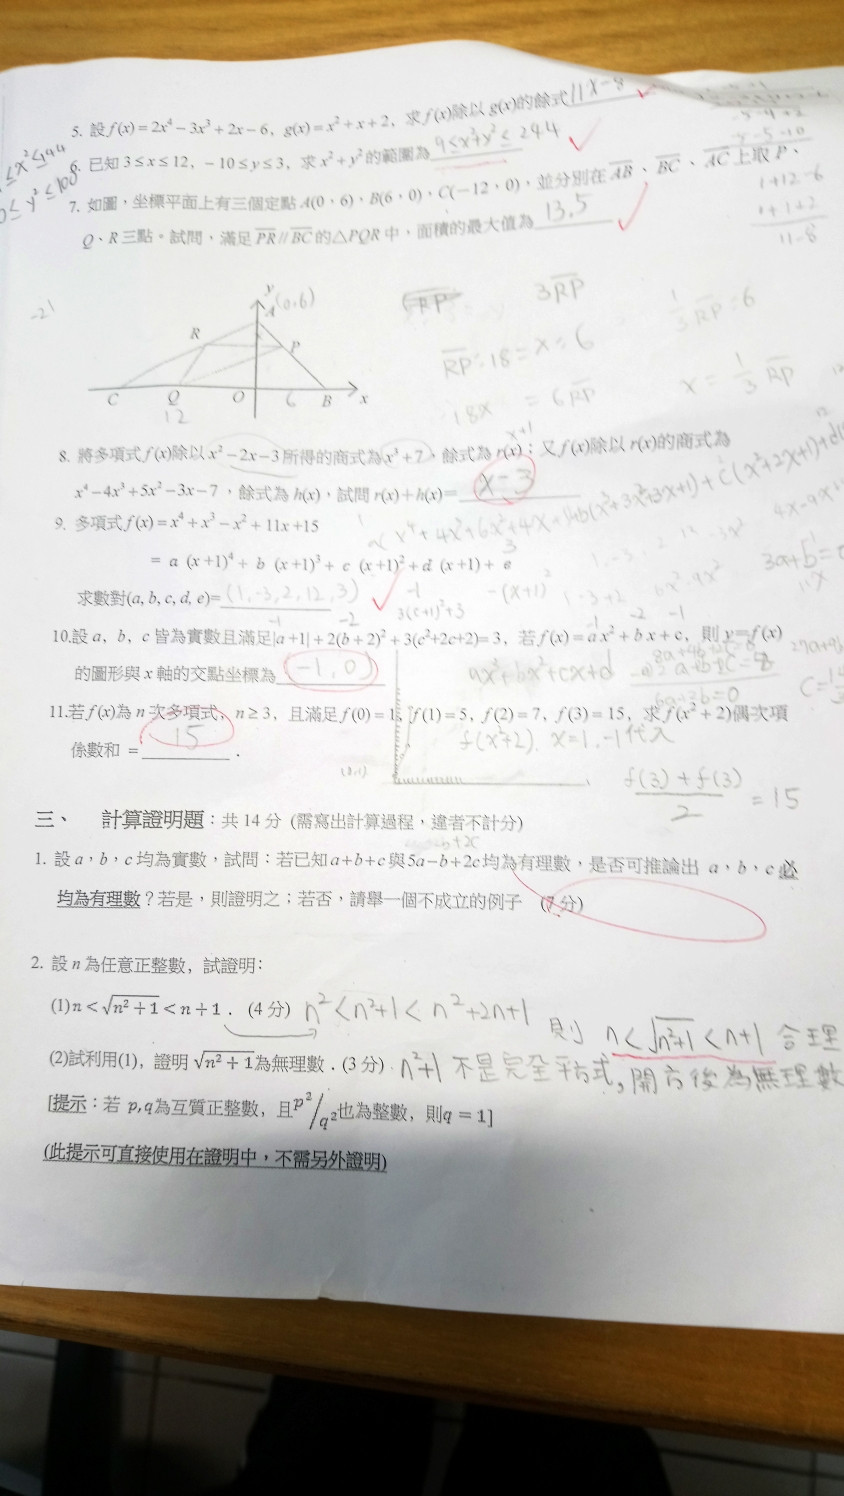 5. 設 f(x) = 2x⁴ − 3x³ + 2x − 6, g(x) = x² + x + 2, 求 f(x)除以 g(x)的餘式 11x-8
≤x²≤144
6. 已知 3 ≤ x ≤ 12, − 10 ≤ y ≤ 3, 求 x² + y² 的範圍為 9≤x²+y²≤244
0≤y²≤100
7. 如圖，坐標平面上有三個定點 A(0，6)，B(6，0)，C(−12，0)，並分別在 AB、BC、AC 上取 P、
Q、R 三點。試問，滿足 PR // BC 的△PQR 中，面積的最大值為 13.5
1+12-6
1+1+2
11-8
-21
y
A (0,6)
RP
3RP
1/3 RP = 6
R
P
RP : 18 = x : 6
18x = 6RP
x = 1/3 RP
C Q O 6 B x
12
8. 將多項式 f(x)除以 x² − 2x − 3 所得的商式為 x³ + 7，餘式為 r(x)；又 f(x)除以 r(x)的商式為
x+1
x⁴ − 4x³ + 5x² − 3x − 7，餘式為 h(x)，試問 r(x) + h(x)= x-3
9. 多項式 f(x) = x⁴ + x³ − x² + 11x +15
= a (x +1)⁴ + b (x +1)³ + c (x +1)² + d (x +1) + e
3
求數對(a, b, c, d, e)= (1,-3,2,12,3)
-1
3(c+1)²+3
-(x+1)²
3a+b=
-1 -2
-1 -2 -1
10.設 a，b，c 皆為實數且滿足|a +1| + 2(b + 2)² + 3(c²+2c+2)= 3，若 f(x) = a x² + b x + c，則 y = f(x)
的圖形與 x 軸的交點坐標為 (-1,0)
ax³+bx²+cx+d
6a+2b=0
11.若 f(x)為 n 次多項式，n ≥ 3，且滿足 f(0) = 1, f(1) = 5, f(2) = 7, f(3) = 15，求 f(x² + 2)偶次項
係數和 = 15 .
f(x²+2) x=1,-1代入
(0,1)
f(3)+f(3)/2 = 15
三、 計算證明題：共 14 分 (需寫出計算過程，違者不計分)
1. 設 a，b，c 均為實數，試問：若已知 a+b+c 與 5a−b+2c 均為有理數，是否可推論出 a，b，c 必
均為有理數？若是，則證明之；若否，請舉一個不成立的例子 (7 分)
2. 設 n 為任意正整數, 試證明：
(1) n < √(n² + 1) < n + 1 . (4 分) n²<n²+1<n²+2n+1
則 n<√(n²+1)<n+1 合理
(2)試利用(1), 證明 √(n² + 1)為無理數 . (3 分) n²+1 不是完全平方式,開方後為無理數
[提示：若 p,q為互質正整數, 且p²/q²也為整數, 則q = 1]
(此提示可直接使用在證明中，不需另外證明)